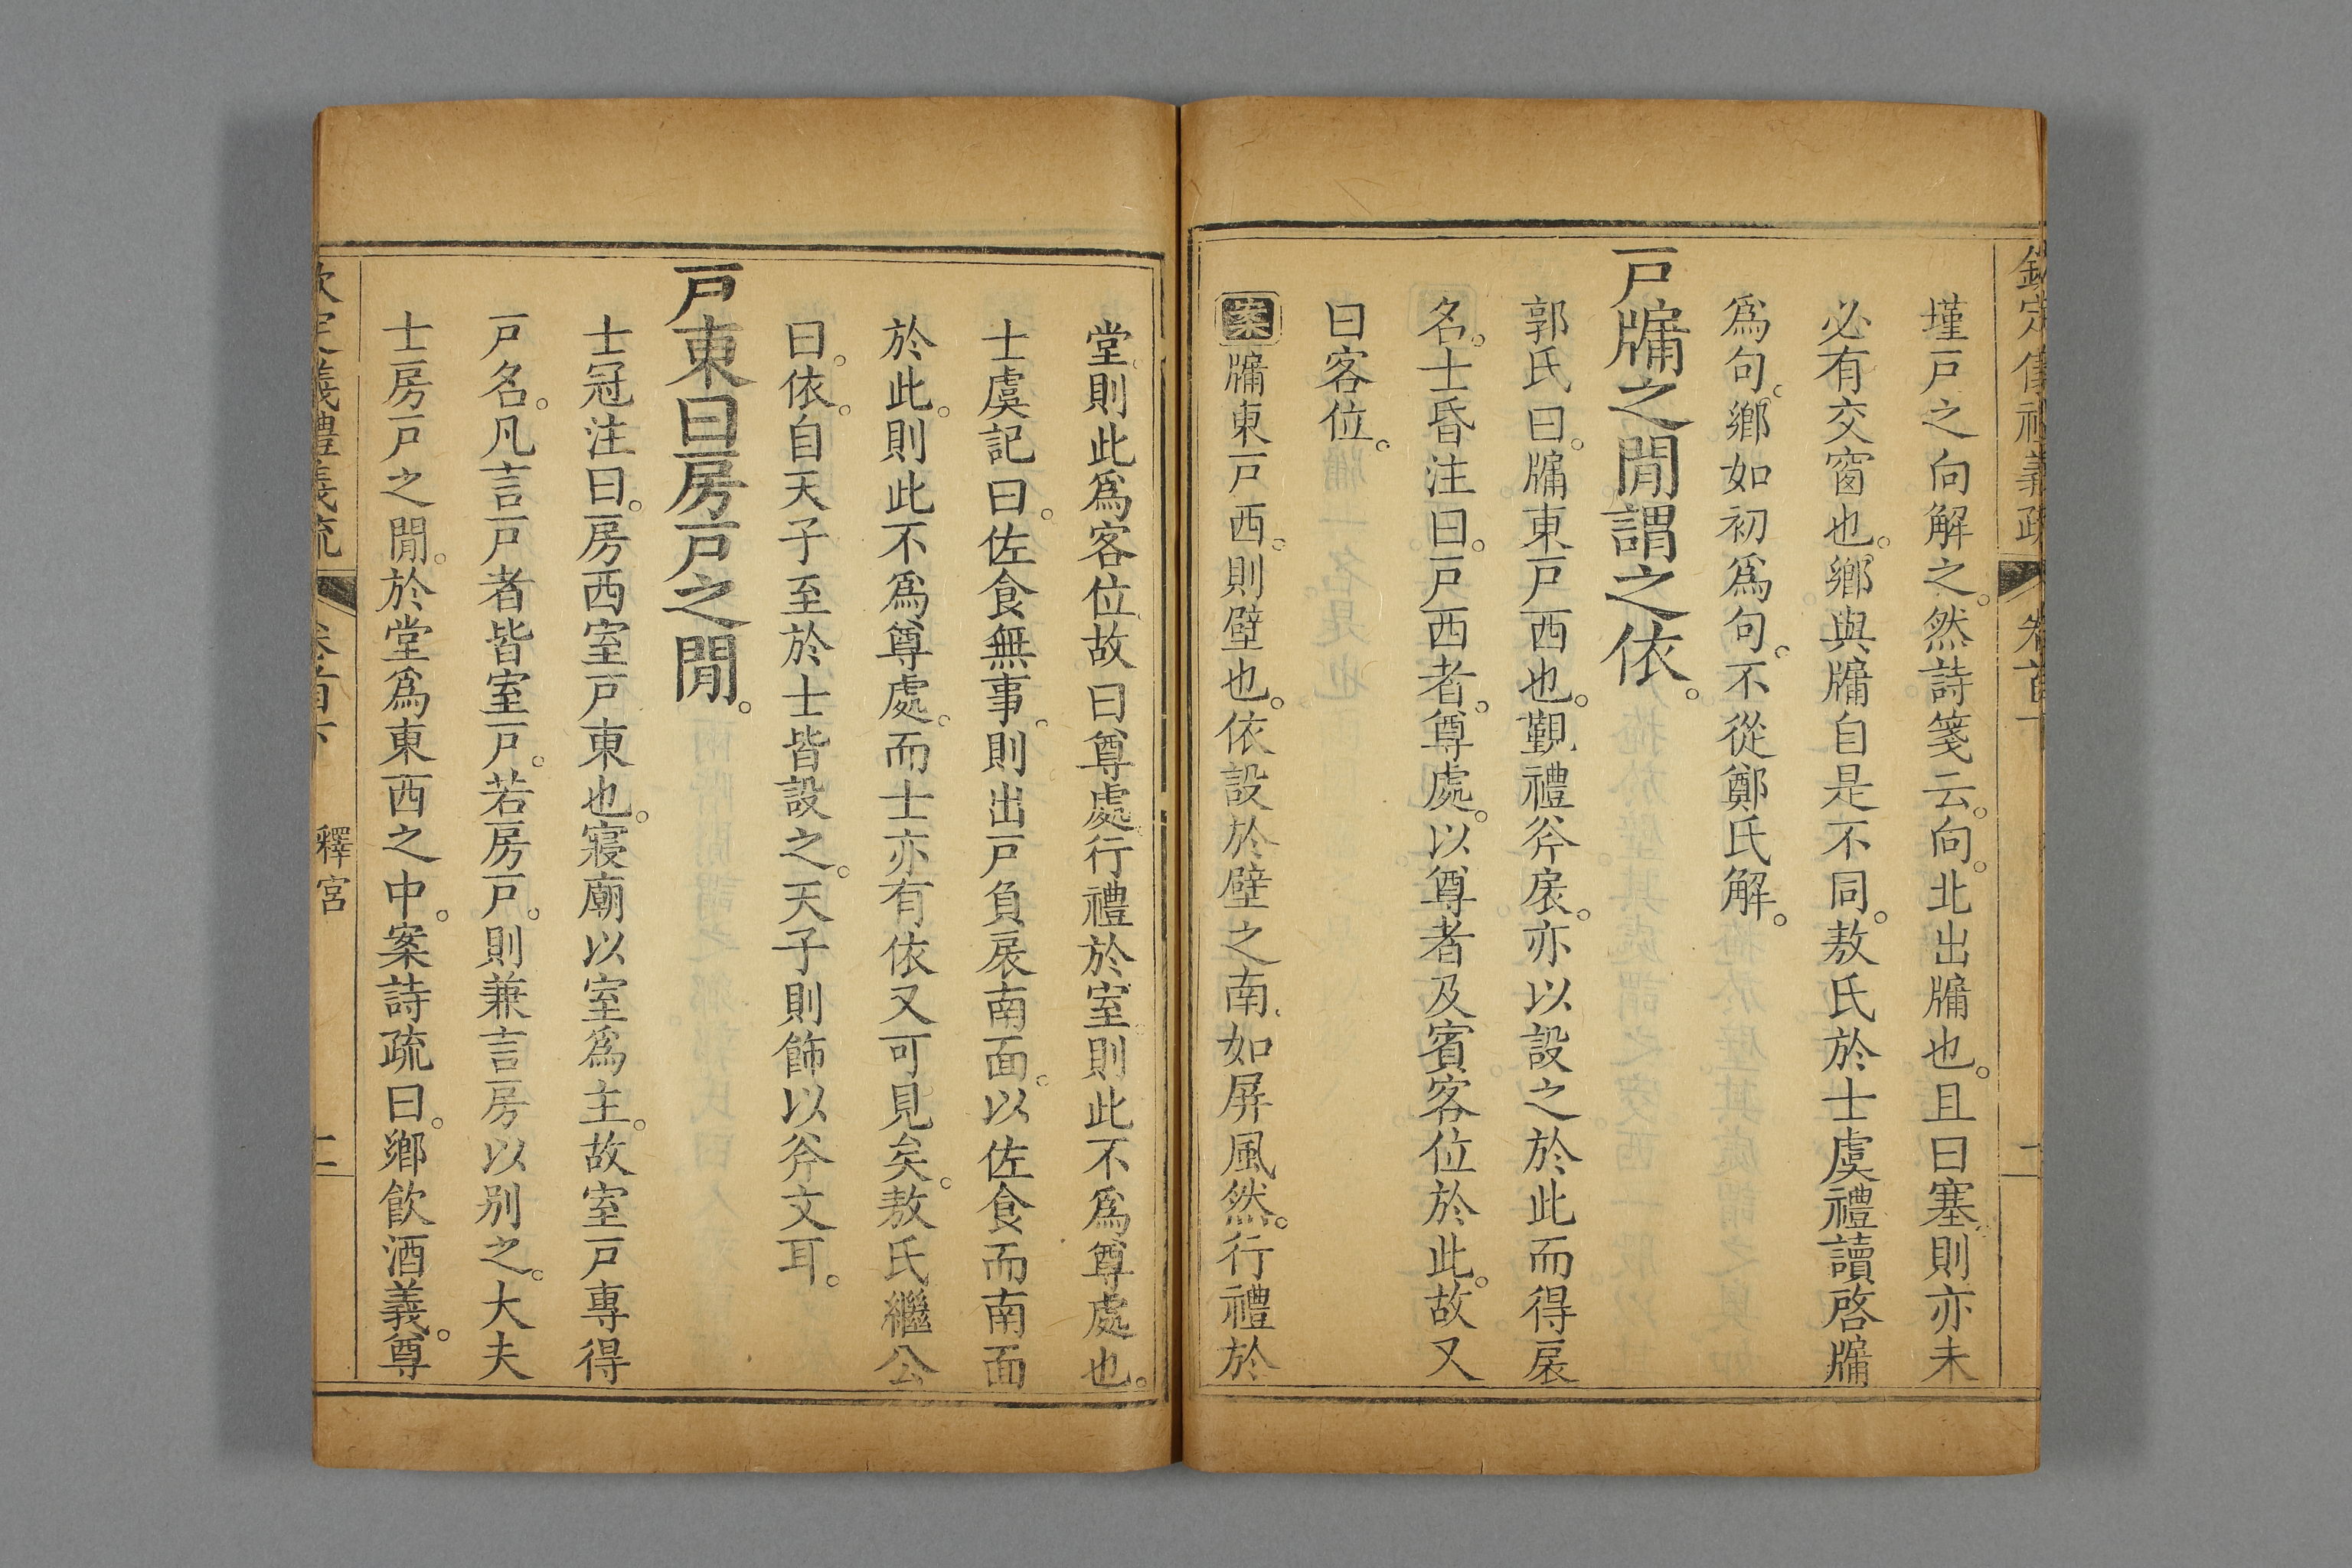 欽定儀禮義疏 卷首下
墐戸之向解之。然詩箋云。向。北出牖也。且曰塞。則亦未
必有交窗也。鄉與牖自是不同。敖氏於士虞禮讀啓牖
爲句。鄉如初爲句。不從鄭氏解。
戸牖之閒謂之依。
郭氏曰。牖東戸西也。覲禮斧扆。亦以設之於此而得扆
名。士昏注曰。戸西者。尊處。以尊者及賓客位於此。故又
曰客位。
案牖東戸西。則壁也。依設於壁之南。如屏風然。行禮於
堂。則此爲客位。故曰尊處。行禮於室。則此不爲尊處也。
士虞記曰。佐食無事。則出戸負扆南面。以佐食而南面
於此。則此不爲尊處。而士亦有依又可見矣。敖氏繼公
曰。依。自天子至於士皆設之。天子則飾以斧文耳。
戸東曰房戸之閒。
士冠注曰。房西室戸東也。寢廟以室爲主。故室戸專得
戸名。凡言戸者皆室戸。若房戸。則兼言房以別之。大夫
士房戸之閒。於堂爲東西之中。案詩疏曰。鄉飲酒義。尊
欽定儀禮義疏 卷首下 釋宮 二